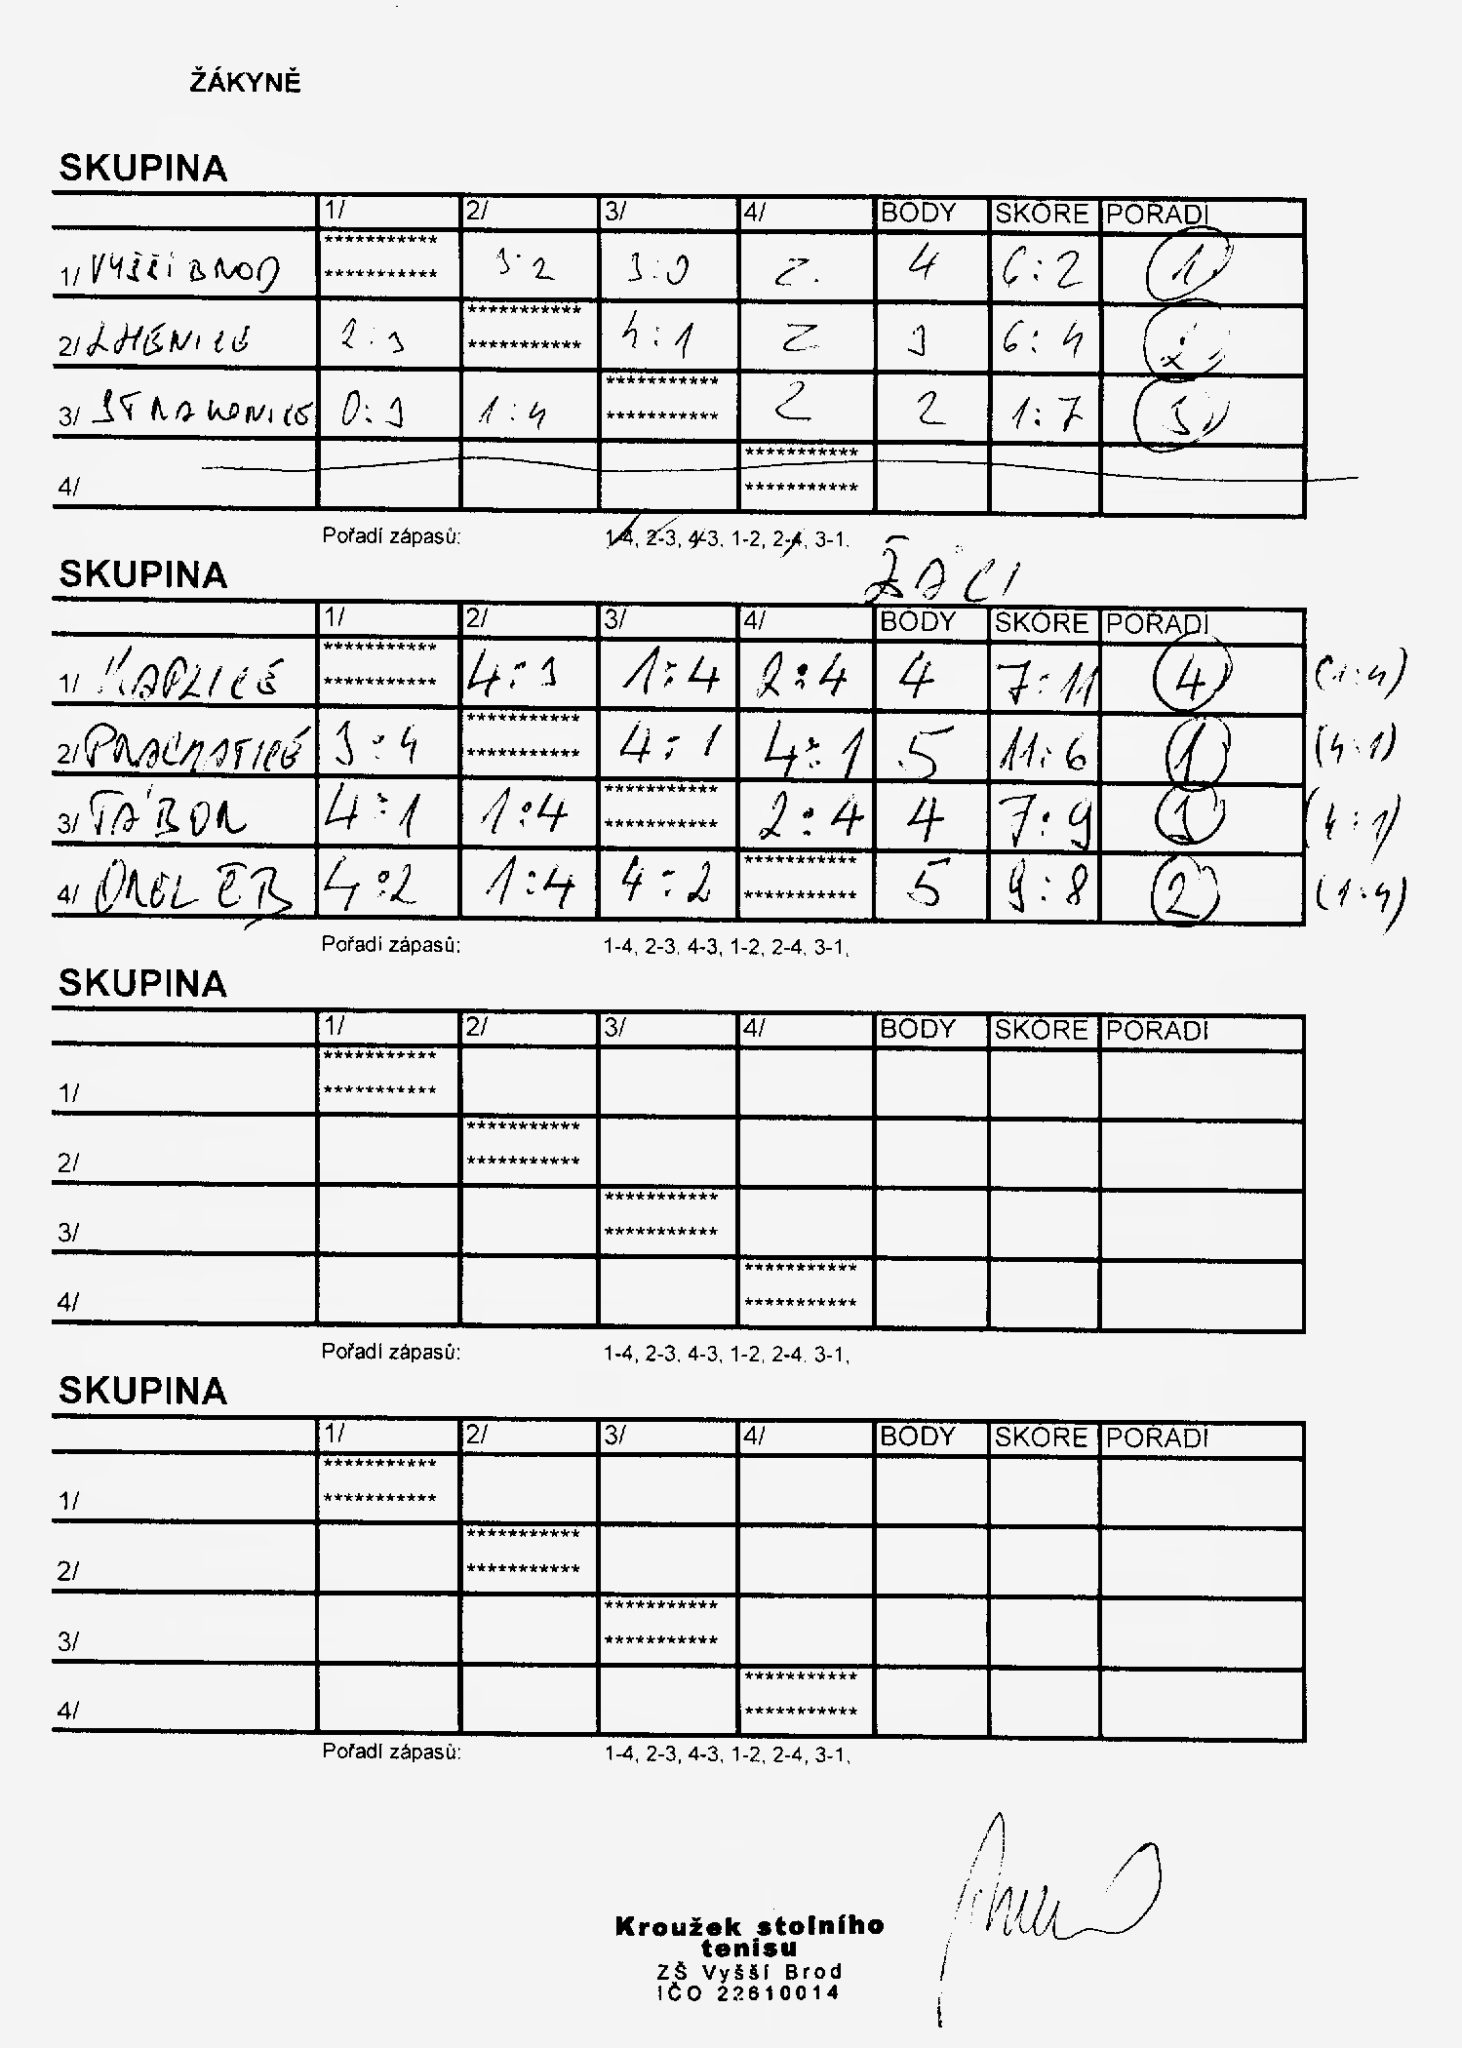 ŽÁKYNĚ
SKUPINA
1/ 2/ 3/ 4/ BODY SKÓRE POŘADÍ
1/ VYŠŠÍ BROD *********** *********** 3:2 3:0 2. 4 6:2 1
2/ LHENICE 2:3 *********** *********** 4:1 2 3 6:4 2
3/ STRAKONICE 0:3 1:4 *********** *********** 2 2 1:7 3
4/ *********** ***********
Pořadí zápasů: 1-4, 2-3, 4-3, 1-2, 2-4, 3-1,
SKUPINA ŽÁCI
1/ 2/ 3/ 4/ BODY SKÓRE POŘADÍ
1/ KAPLICE *********** *********** 4:3 1:4 2:4 4 7:11 4 (1:4)
2/ PRACHATICE 3:4 *********** *********** 4:1 4:1 5 11:6 1 (4:1)
3/ TÁBOR 4:1 1:4 *********** *********** 2:4 4 7:9 3 (4:1)
4/ OREL ČB 4:2 1:4 4:2 *********** *********** 5 9:8 2 (1:4)
Pořadí zápasů: 1-4, 2-3, 4-3, 1-2, 2-4, 3-1,
SKUPINA
1/ 2/ 3/ 4/ BODY SKÓRE POŘADÍ
1/ *********** ***********
2/ *********** ***********
3/ *********** ***********
4/ *********** ***********
Pořadí zápasů: 1-4, 2-3, 4-3, 1-2, 2-4, 3-1,
SKUPINA
1/ 2/ 3/ 4/ BODY SKÓRE POŘADÍ
1/ *********** ***********
2/ *********** ***********
3/ *********** ***********
4/ *********** ***********
Pořadí zápasů: 1-4, 2-3, 4-3, 1-2, 2-4, 3-1,
Kroužek stolního
tenisu
ZŠ Vyšší Brod
IČO 22610014